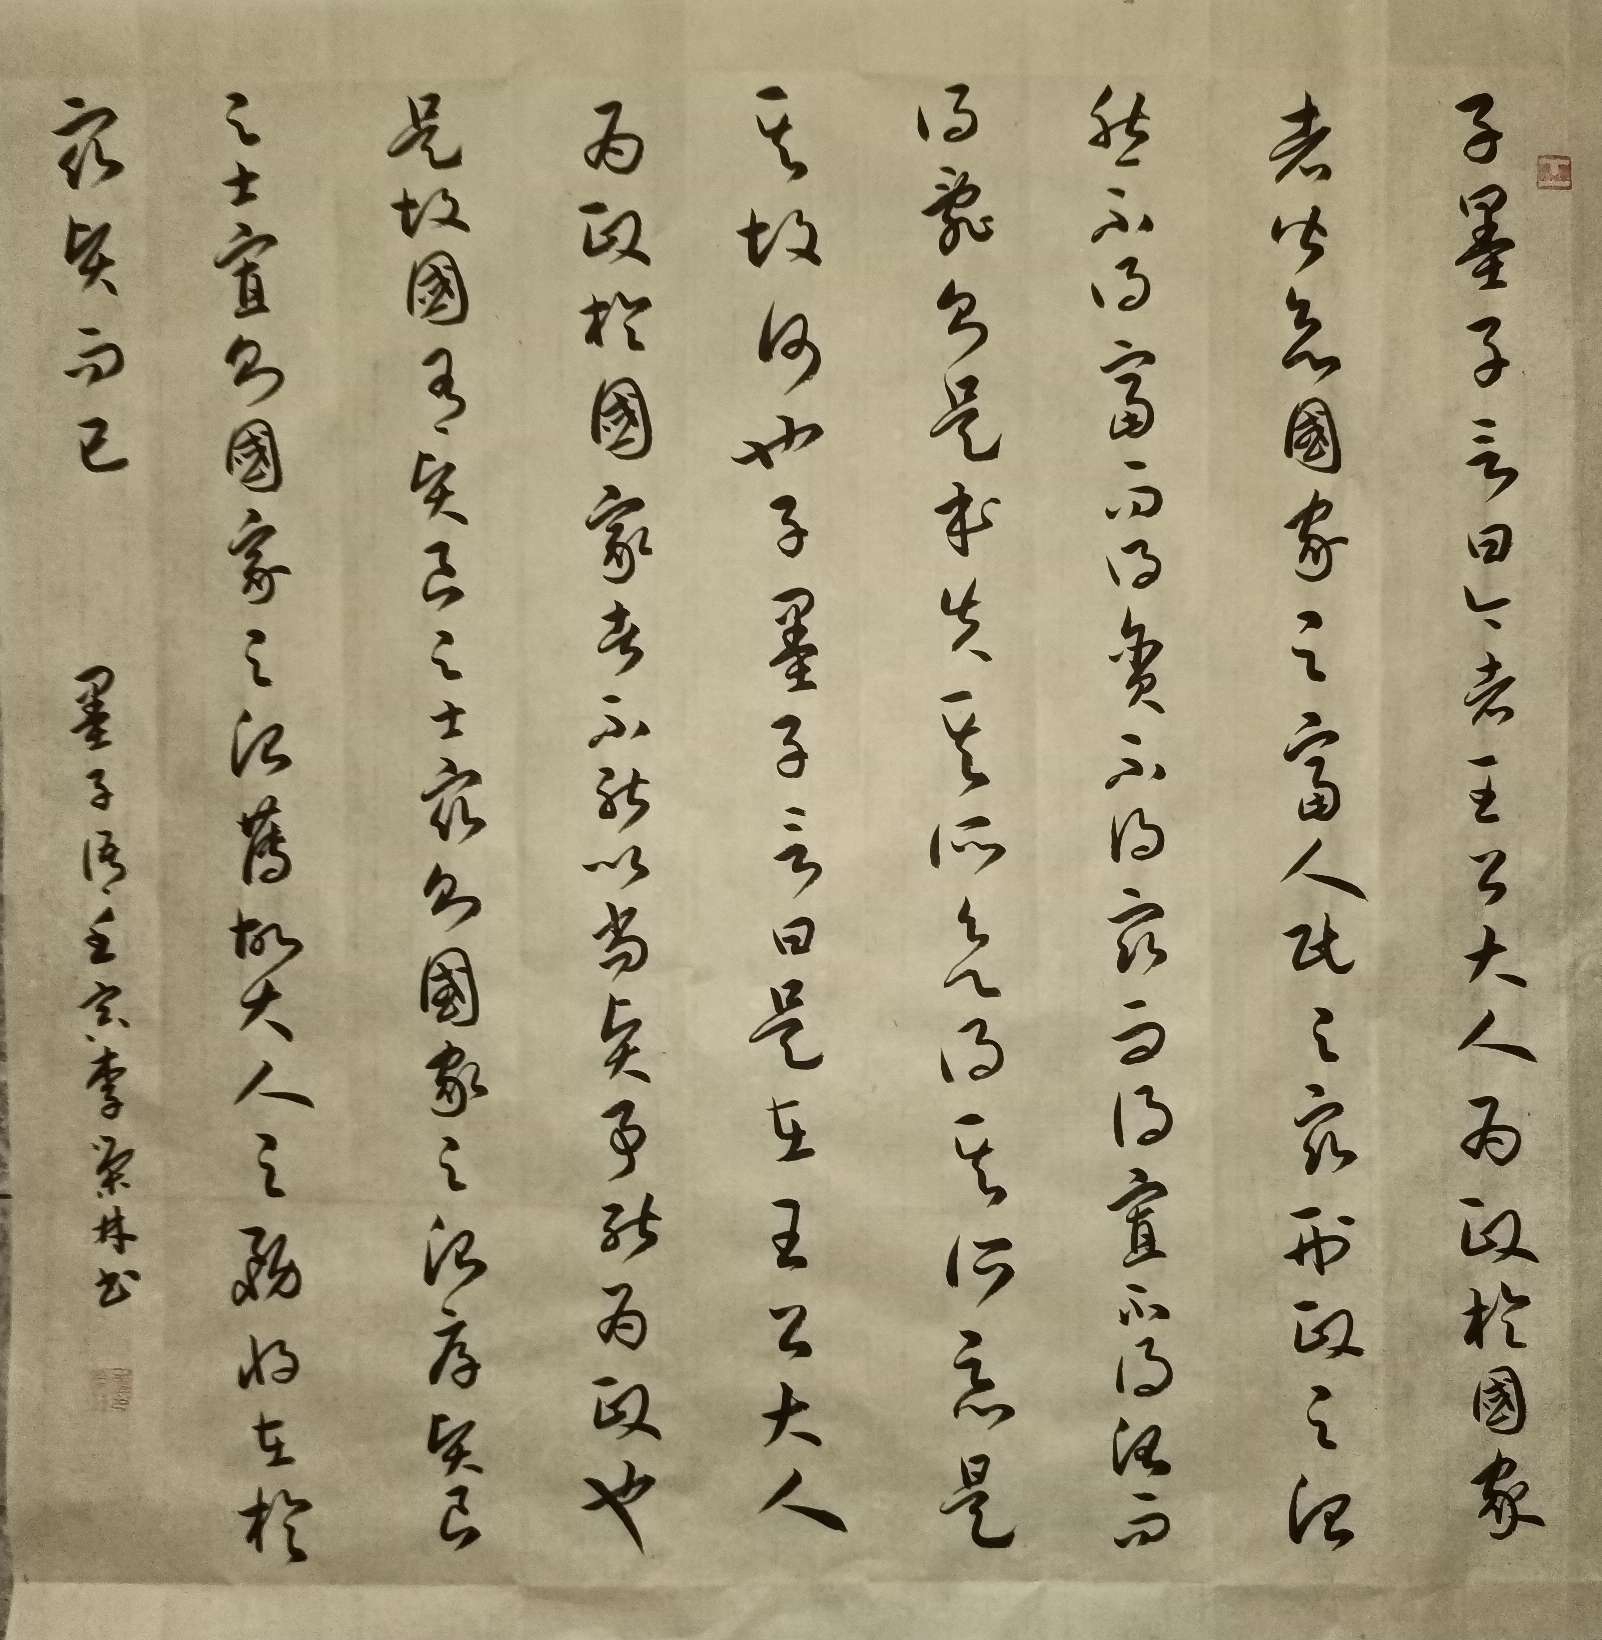 子墨子言曰今者王公大人為政於國家
者皆欲國家之富人民之眾刑政之治
然不得富而得貧不得眾而得寡不得治而
得亂則是本失其所欲得其所惡是
其故何也子墨子言曰是在王公大人
為政於國家者不能以尚賢事能為政也
是故國有賢良之士眾則國家之治厚賢良
之士寡則國家之治薄故大人之務將在於
眾賢而已
墨子語壬寅李榮林书